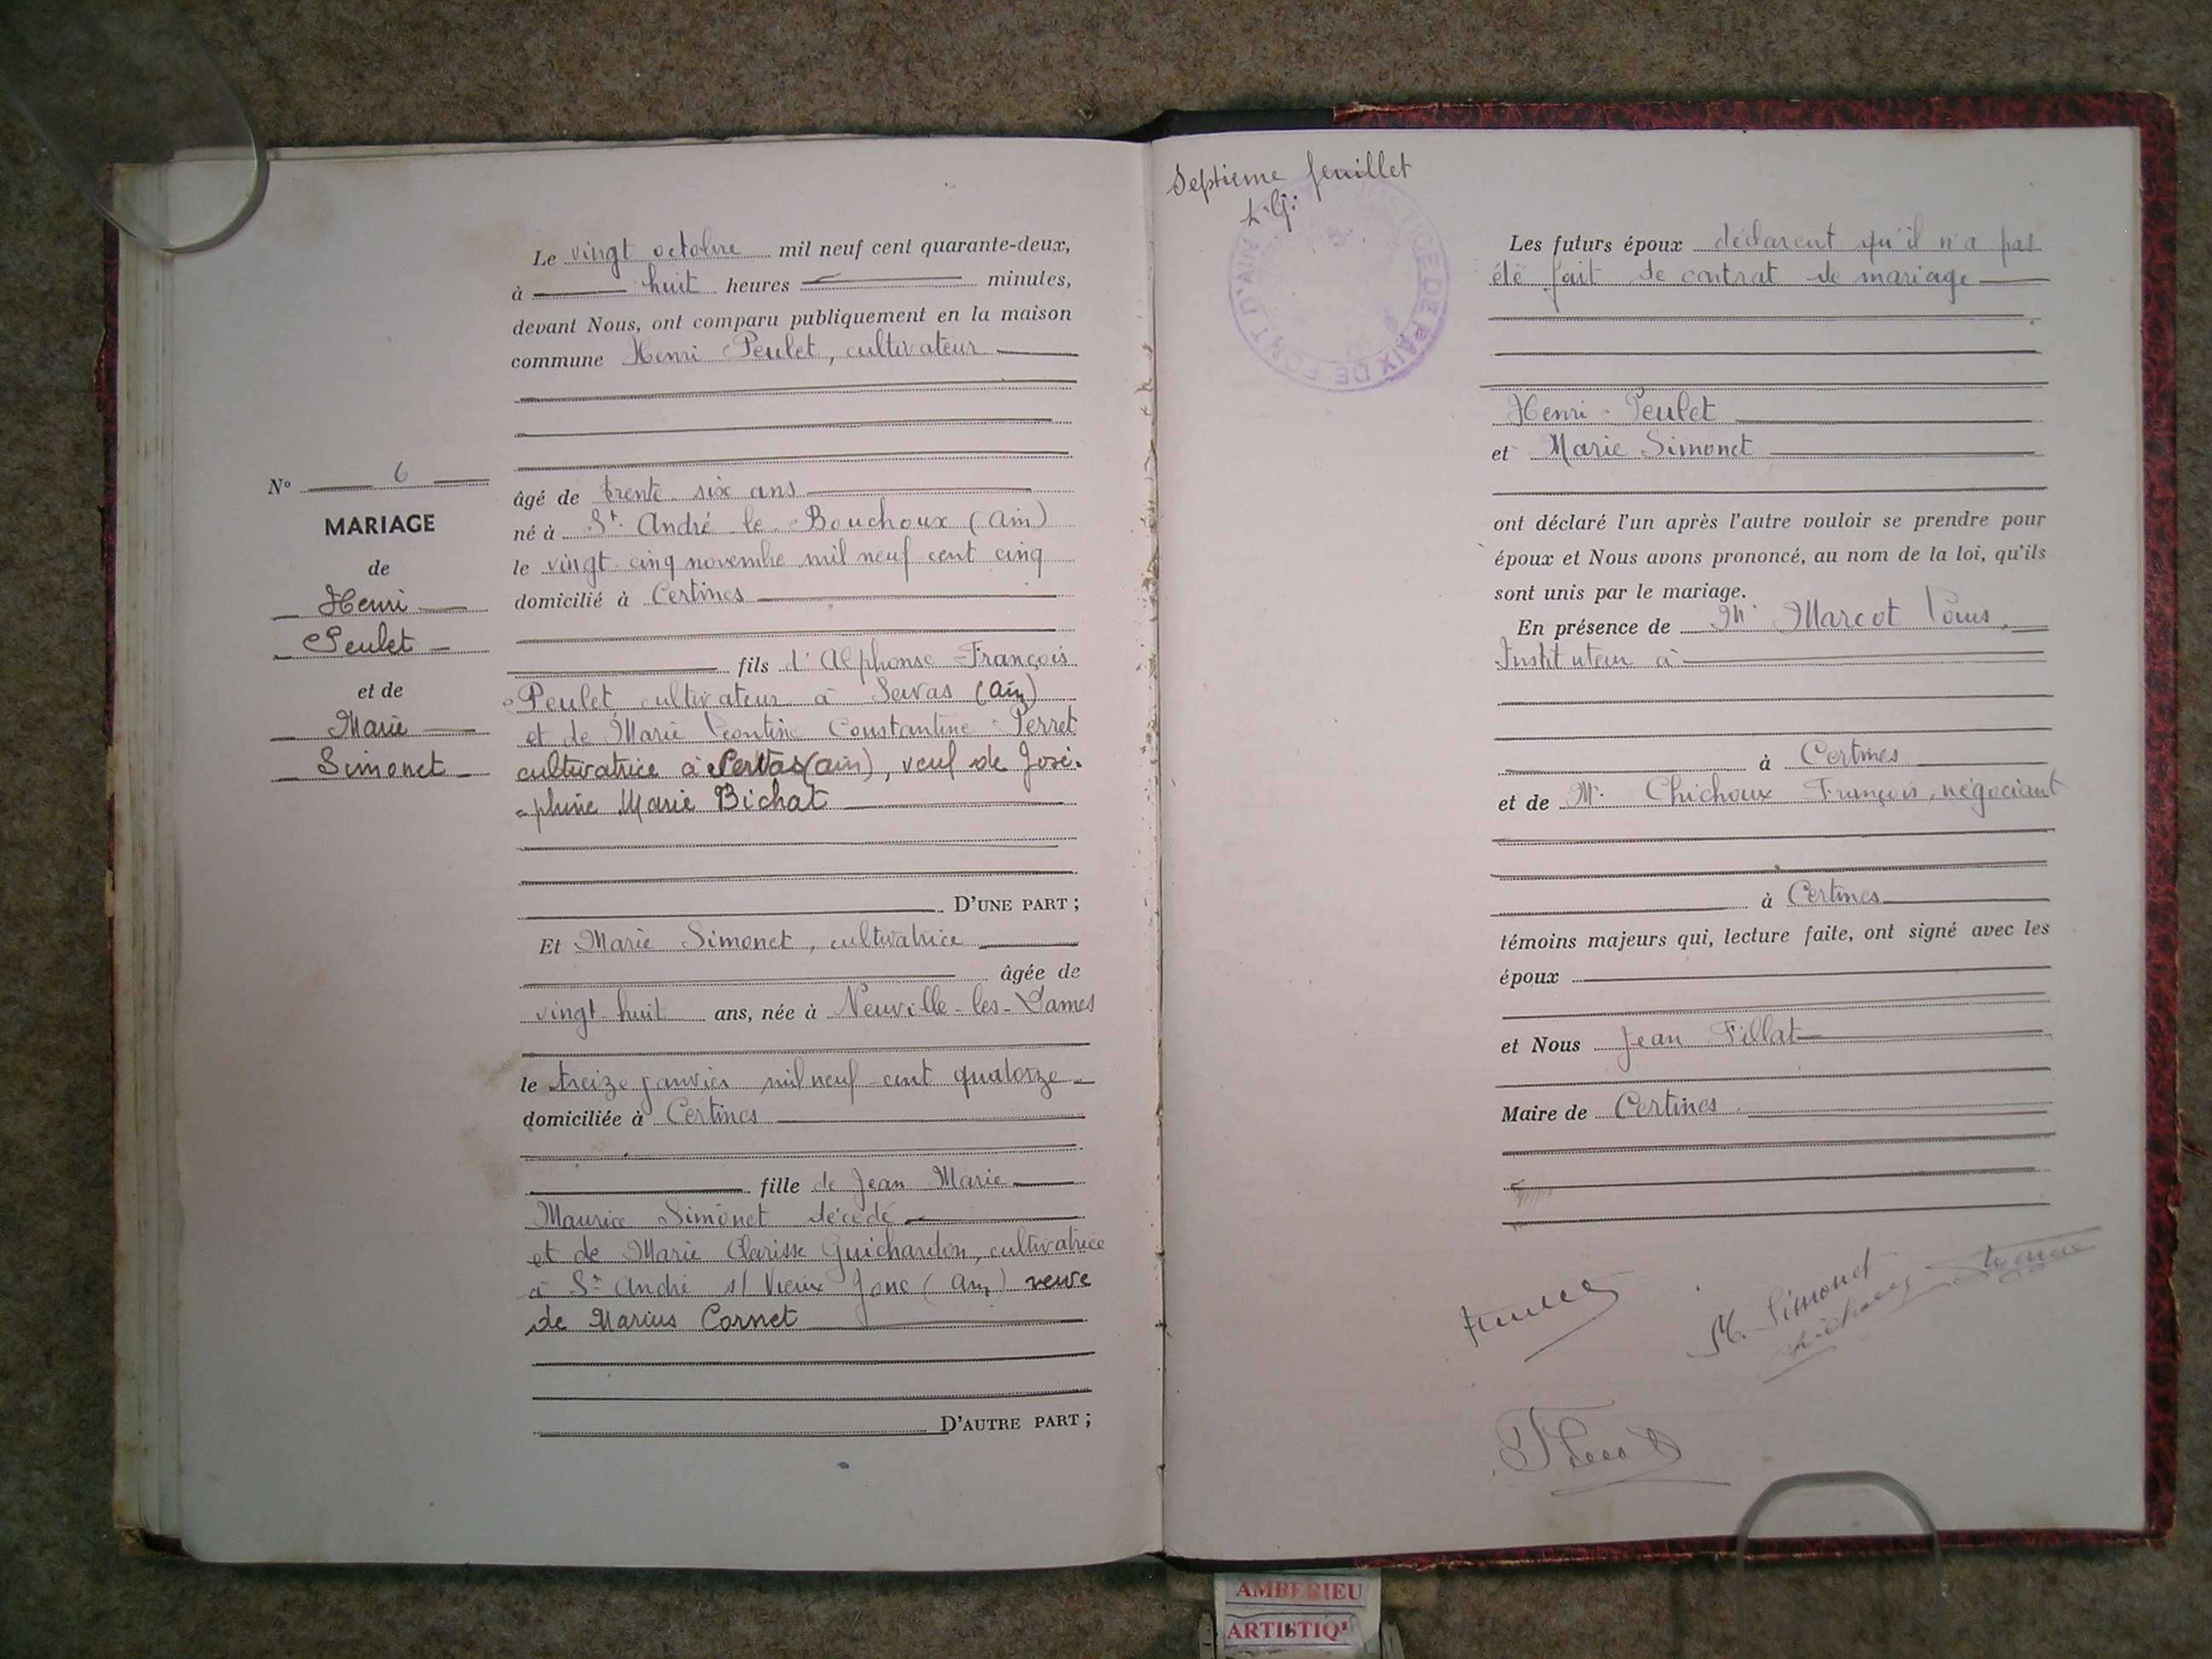 Le vingt octobre mil neuf cent quarante-deux,
à huit heures minutes,
devant Nous, ont comparu publiquement en la maison
commune Henri Peulet, cultivateur
N° 6
MARIAGE
de
Henri
Peulet
et de
Marie
Simonet
âgé de trente six ans
né à St. André le Bouchoux (Ain)
le vingt cinq novembre mil neuf cent cinq
domicilié à Certines
fils d'Alphonse François
Peulet, cultivateur à Servas (Ain)
et de Marie Léontine Constantine Perret
cultivatrice à Servas (ain), veuf de José-
-phine Marie Bichat
D'UNE PART ;
Et Marie Simonet, cultivatrice
âgée de
vingt-huit ans, née à Neuville-les-Dames
le treize janvier mil neuf cent quatorze
domiciliée à Certines
fille de Jean Marie
Maurice Simonet décédé
et de Marie Clarisse Guichardon, cultivatrice
à St André s/ Vieux Jonc (Ain) veuve
de Marius Cornet
D'AUTRE PART ;
Septieme feuillet
L.G.
JUSTICE DE PAIX DE PONT D'AIN
Les futurs époux déclarent qu'il n'a pas
été fait de contrat de mariage
Henri Peulet
et Marie Simonet
ont déclaré l'un après l'autre vouloir se prendre pour
époux et Nous avons prononcé, au nom de la loi, qu'ils
sont unis par le mariage.
En présence de Mr Marcot Louis,
Instituteur à
à Certines
et de Mr. Chichoux François, négociant
à Certines
témoins majeurs qui, lecture faite, ont signé avec les
époux
et Nous Jean Fillat
Maire de Certines
M. Simonet
AMBERIEU
ARTISTIQ